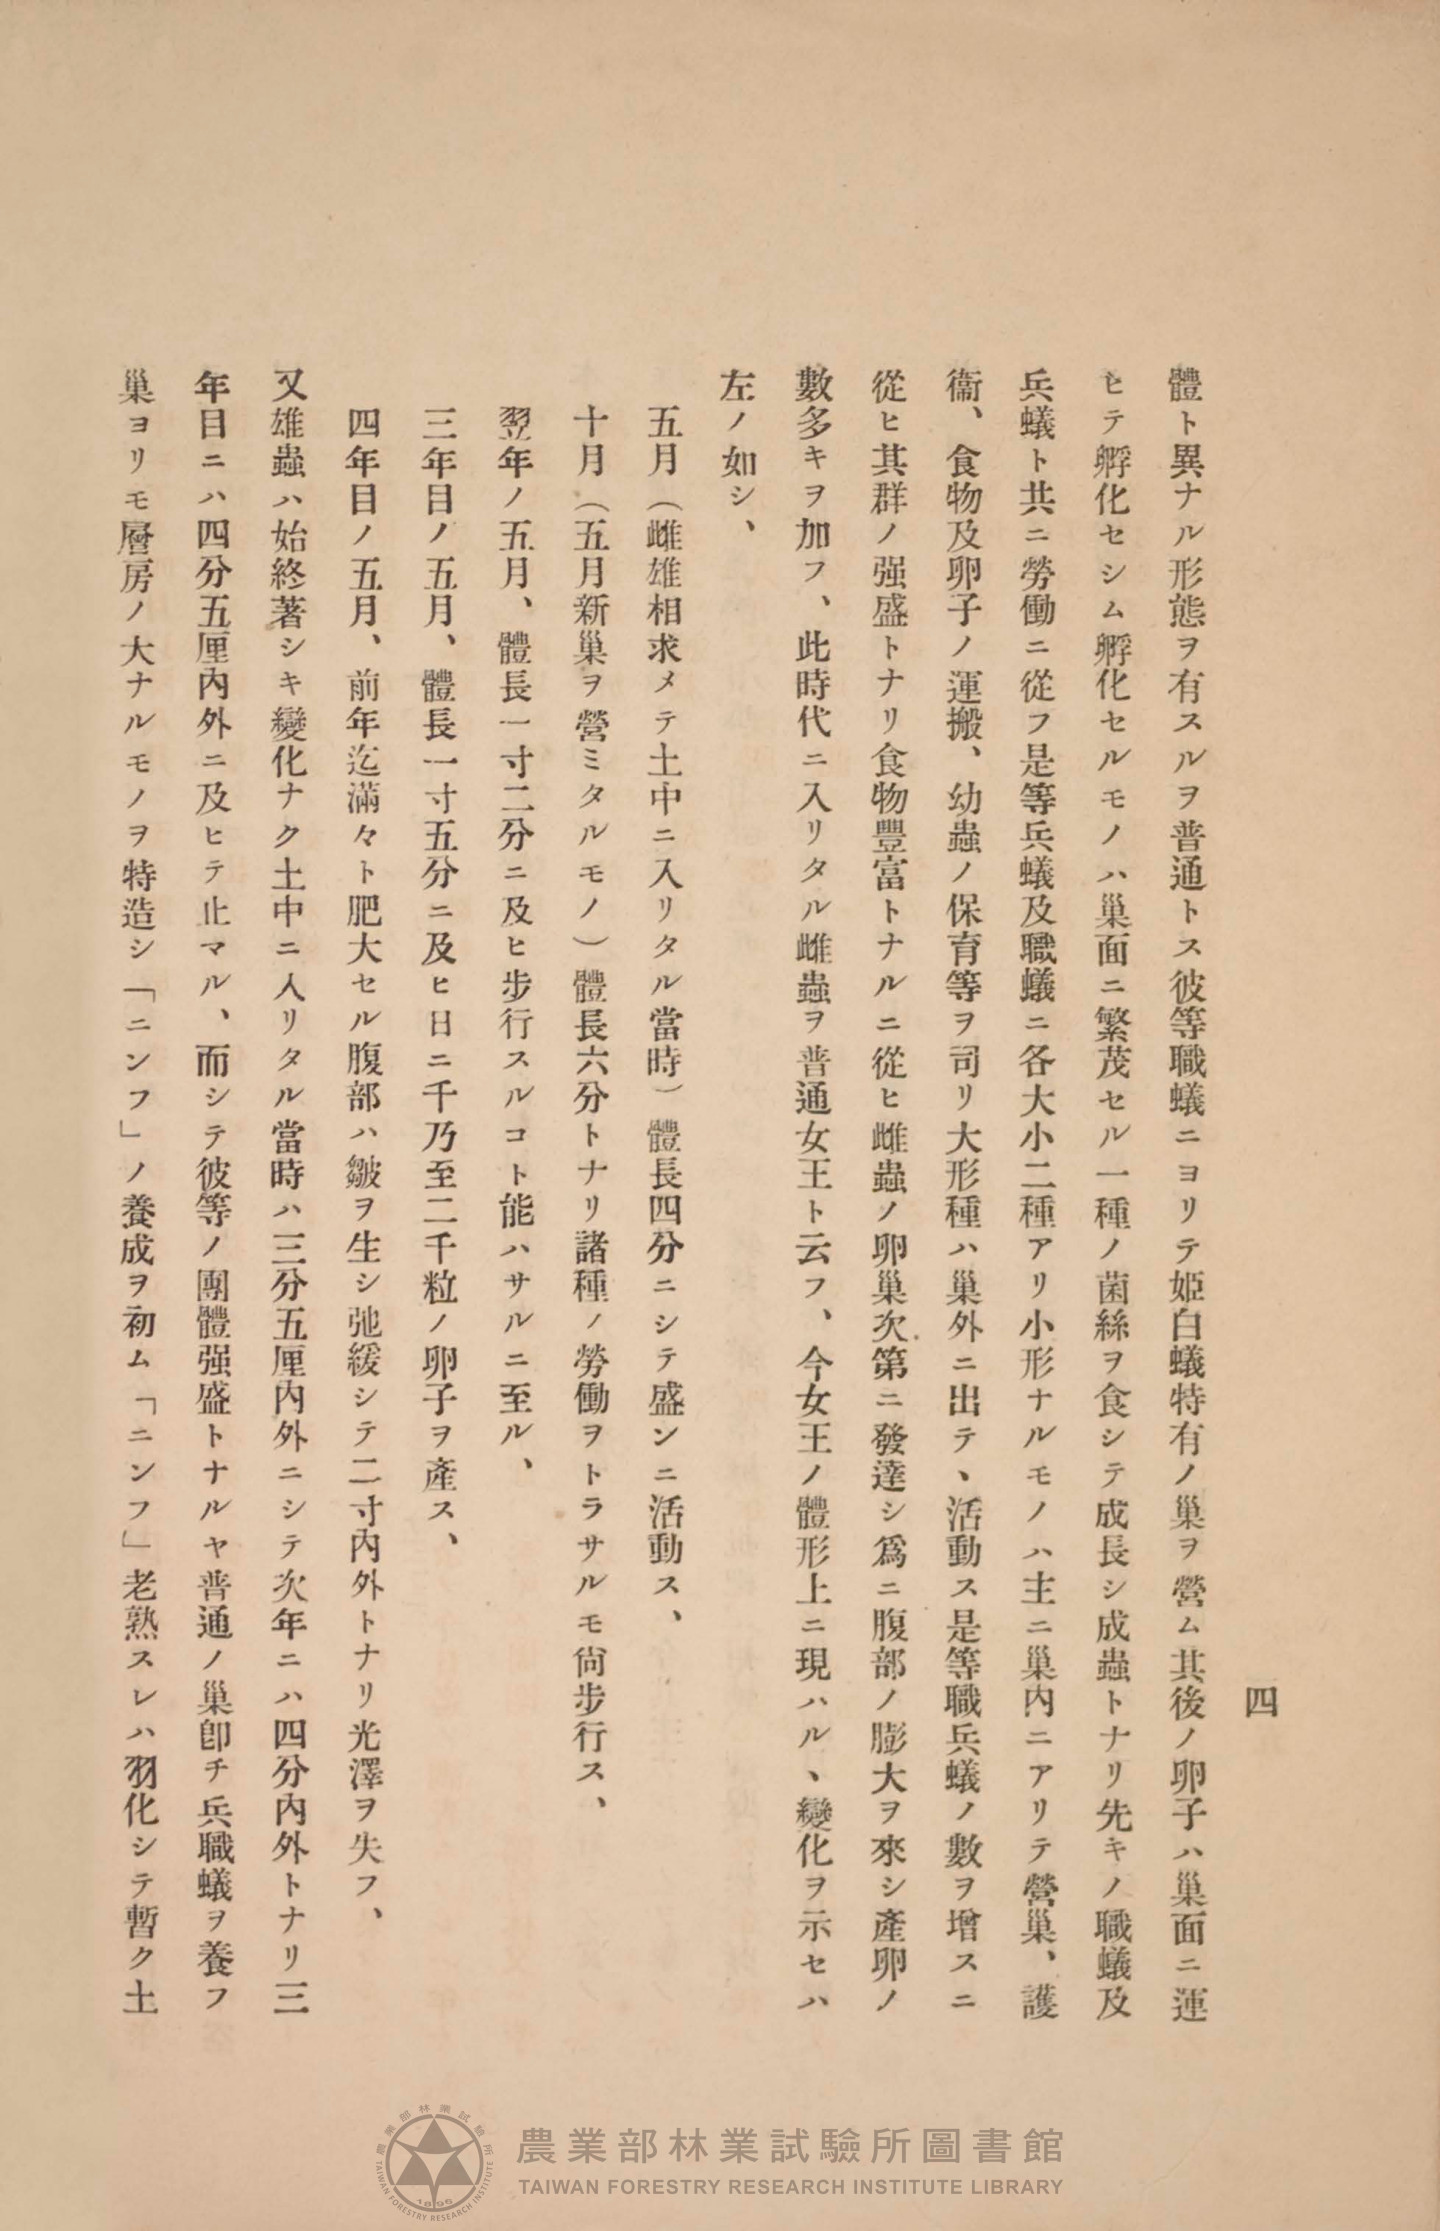 四
體ト異ナル形態ヲ有スルヲ普通トス彼等職蟻ニヨリテ姫白蟻特有ノ巢ヲ營ム其後ノ卵子ハ巢面ニ運
ヒテ孵化セシム孵化セルモノハ巢面ニ繁茂セル一種ノ菌絲ヲ食シテ成長シ成蟲トナリ先キノ職蟻及
兵蟻ト共ニ勞働ニ從フ是等兵蟻及職蟻ニ各大小二種アリ小形ナルモノハ主ニ巢內ニアリテ營巢、護
衞、食物及卵子ノ運搬、幼蟲ノ保育等ヲ司リ大形種ハ巢外ニ出テヽ活動ス是等職兵蟻ノ數ヲ增スニ
從ヒ其群ノ强盛トナリ食物豐富トナルニ從ヒ雌蟲ノ卵巢次第ニ發達シ爲ニ腹部ノ膨大ヲ來シ產卵ノ
數多キヲ加フ、此時代ニ入リタル雌蟲ヲ普通女王ト云フ、今女王ノ體形上ニ現ハルヽ變化ヲ示セハ
左ノ如シ、
五月（雌雄相求メテ土中ニ入リタル當時）體長四分ニシテ盛ンニ活動ス、
十月（五月新巢ヲ營ミタルモノ）體長六分トナリ諸種ノ勞働ヲトラサルモ尙步行ス、
翌年ノ五月、體長一寸二分ニ及ヒ步行スルコト能ハサルニ至ル、
三年目ノ五月、體長一寸五分ニ及ヒ日ニ千乃至二千粒ノ卵子ヲ產ス、
四年目ノ五月、前年迄滿々ト肥大セル腹部ハ皺ヲ生シ弛緩シテ二寸內外トナリ光澤ヲ失フ、
又雄蟲ハ始終著シキ變化ナク土中ニ入リタル當時ハ三分五厘內外ニシテ次年ニハ四分內外トナリ三
年目ニハ四分五厘內外ニ及ヒテ止マル、而シテ彼等ノ團體强盛トナルヤ普通ノ巢卽チ兵職蟻ヲ養フ
巢ヨリモ層房ノ大ナルモノヲ特造シ「ニンフ」ノ養成ヲ初ム「ニンフ」老熟スレハ羽化シテ暫ク土
農業部林業試驗所圖書館
TAIWAN FORESTRY RESEARCH INSTITUTE LIBRARY
農業部林業試驗所
TAIWAN FORESTRY RESEARCH INSTITUTE
1896